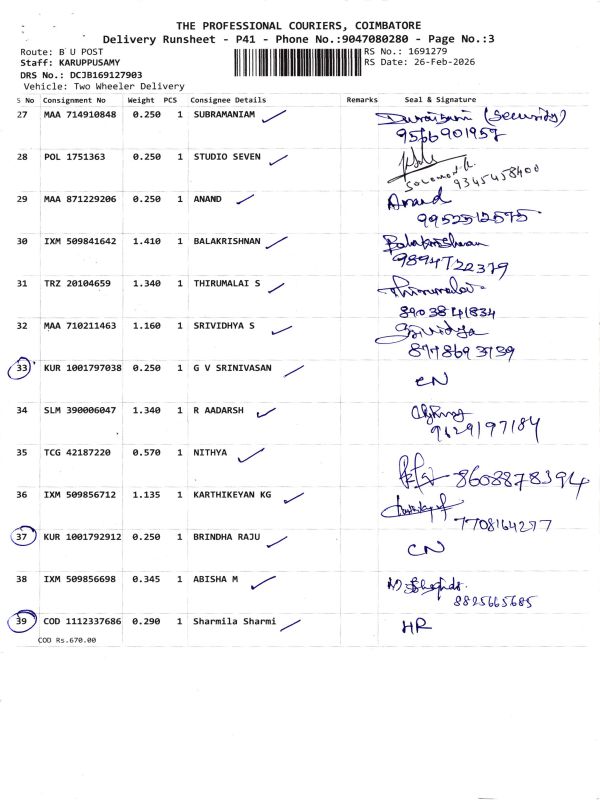 THE PROFESSIONAL COURIERS, COIMBATORE
Delivery Runsheet - P41 - Phone No.:9047080280 - Page No.:3
Route: B U POST RS No.: 1691279
Staff: KARUPPUSAMY RS Date: 26-Feb-2026
DRS No.: DCJB169127903
Vehicle: Two Wheeler Delivery
S No Consignment No Weight PCS Consignee Details Remarks Seal & Signature
27 MAA 714910848 0.250 1 SUBRAMANIAM (Security)
9566901957
28 POL 1751363 0.250 1 STUDIO SEVEN
9345458400
29 MAA 871229206 0.250 1 ANAND Anand
9952512575
30 IXM 509841642 1.410 1 BALAKRISHNAN Balakrishnan
9894722379
31 TRZ 20104659 1.340 1 THIRUMALAI S Thirumalai
8903841834
32 MAA 710211463 1.160 1 SRIVIDHYA S Srividya
8778693739
33 KUR 1001797038 0.250 1 G V SRINIVASAN CN
34 SLM 390006047 1.340 1 R AADARSH
9629197184
35 TCG 42187220 0.570 1 NITHYA 8608878394
36 IXM 509856712 1.135 1 KARTHIKEYAN KG
7708164277
37 KUR 1001792912 0.250 1 BRINDHA RAJU CN
38 IXM 509856698 0.345 1 ABISHA M
8825665685
39 COD 1112337686 0.290 1 Sharmila Sharmi HR
COD Rs.670.00